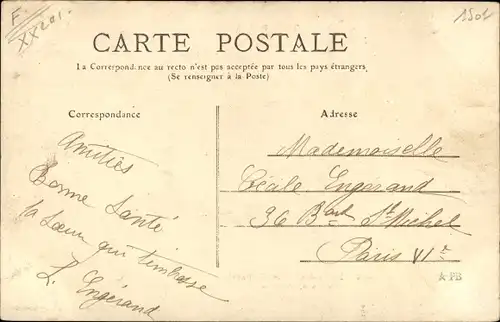 F
XX201.
1501
CARTE POSTALE
La Correspondance au recto n'est pas acceptée par tous les pays étrangers
(Se renseigner à la Poste)
Correspondance
Adresse
Amitiés
Bonne Santé
ta Sœur qui t'embrasse
L. Engérand
Mademoiselle
Cécile Engerand
36 Bard St Michel
Paris VIe
★ PB